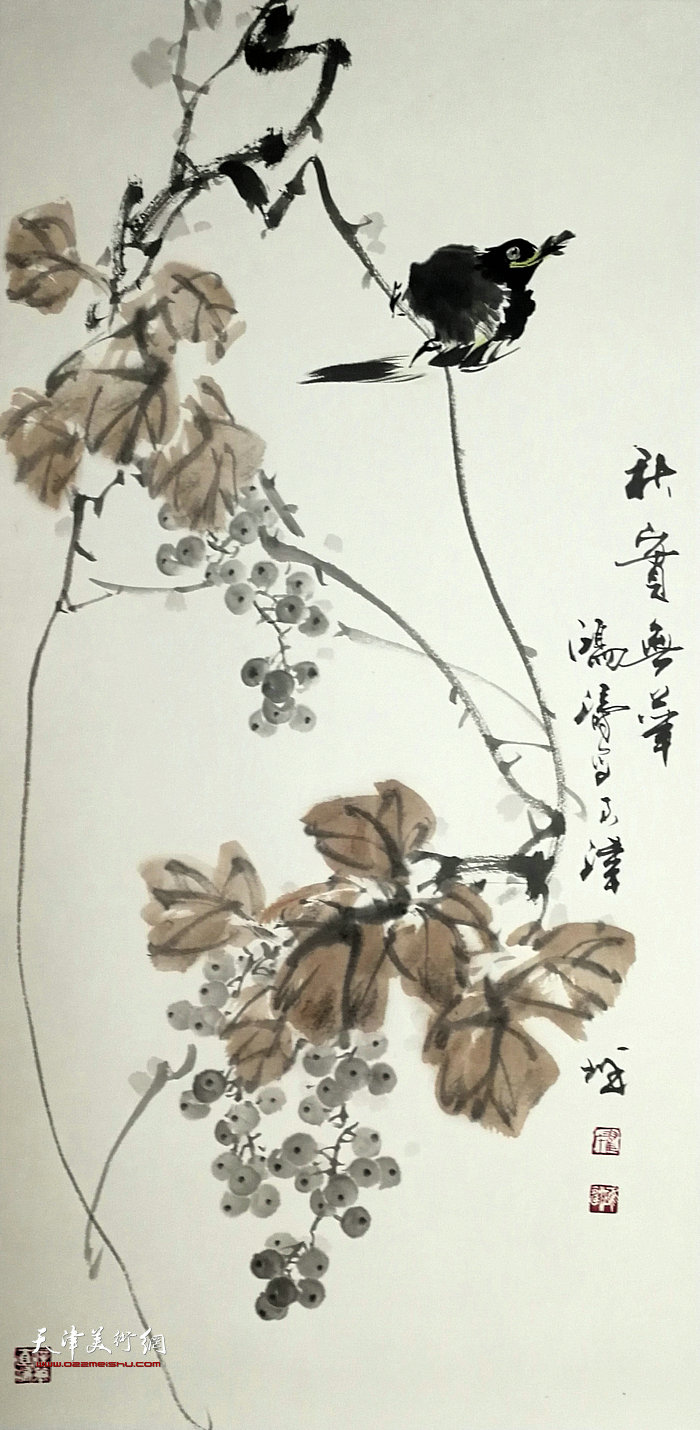 秋實無華
鴻濤写于津
城
天津美術網
www.022meishu.com